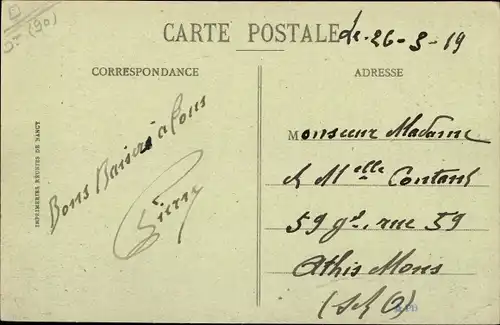 (90)
CARTE POSTALE
Le 26-3-19
CORRESPONDANCE
ADRESSE
IMPRIMERIES RÉUNIES DE NANCY
Bons Baisers à tous
Pierre
Monsieur Madame
& Melle Contant
59 gd. rue 59
Athis Mons
(S et O)